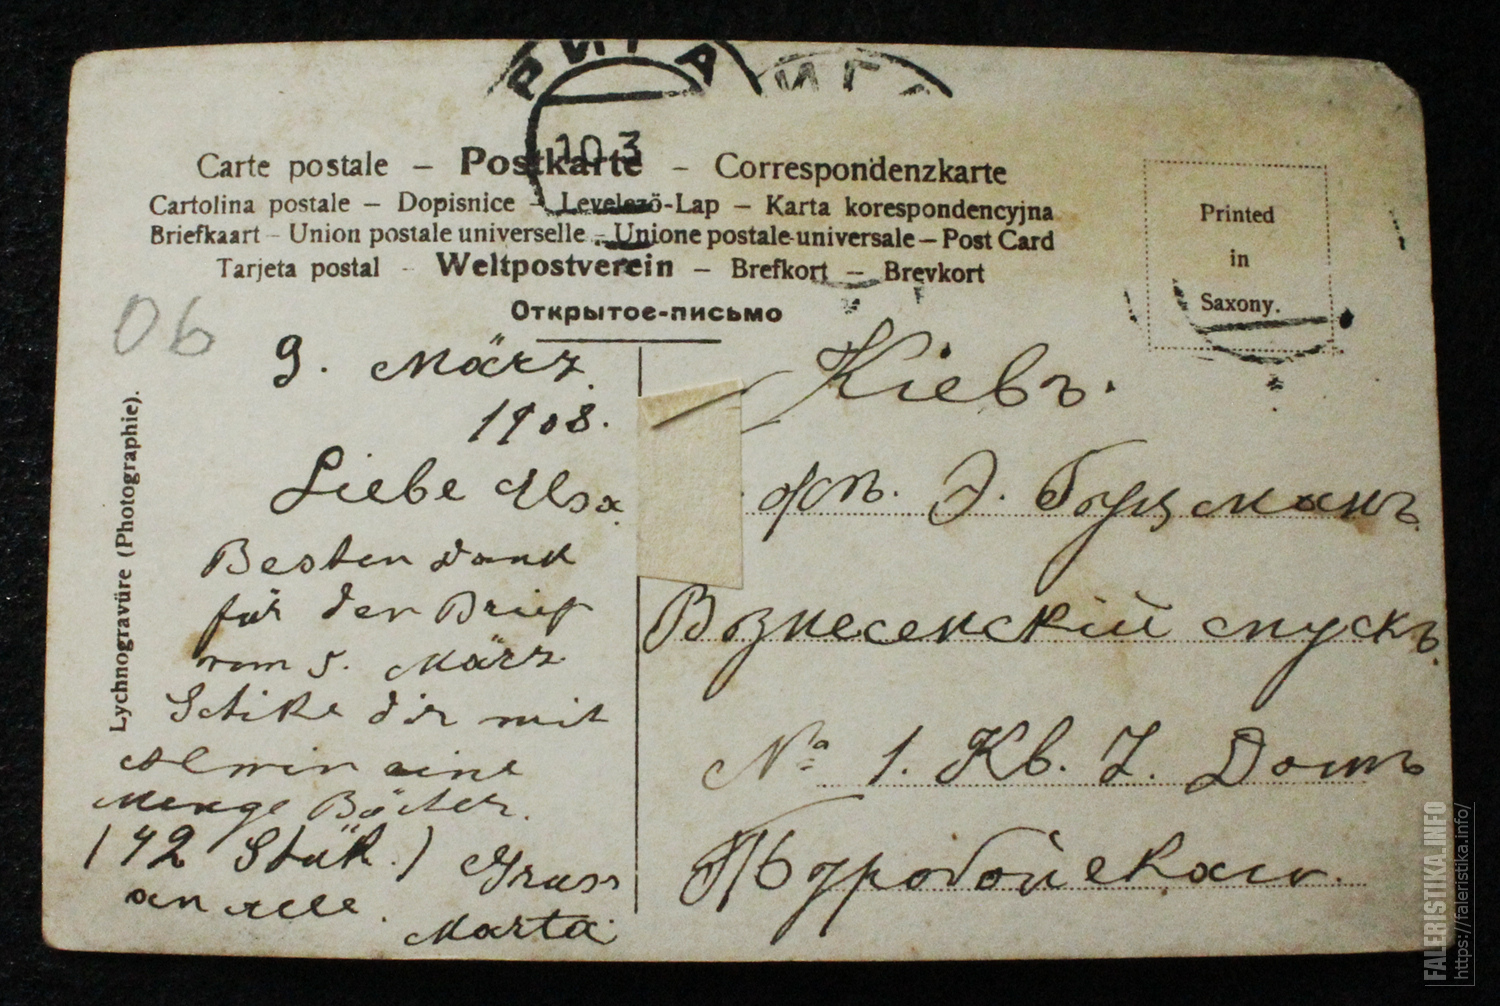 РИГА
ИГ
10 3
Carte postale – Postkarte – Correspondenzkarte
Cartolina postale – Dopisnice – Levelező-Lap – Karta korespondencyjna
Briefkaart – Union postale universelle – Unione postale universale – Post Card
Tarjeta postal – Weltpostverein – Brefkort – Brevkort
Открытое-письмо
Printed
in
Saxony.
06
Lychnogravüre (Photographie).
9. März
1908.
Liebe Elsa
Besten Dank
für den Brief
vom 5. März
Schike dir mit
eine
Menge Bücher.
(42 Stük.) Gruss
an alle.
Marta
Кіевъ.
Э.
Вознесенскій спускъ
№ 1. Кв. 7. Домъ
FALERISTIKA.INFO
https://faleristika.info/